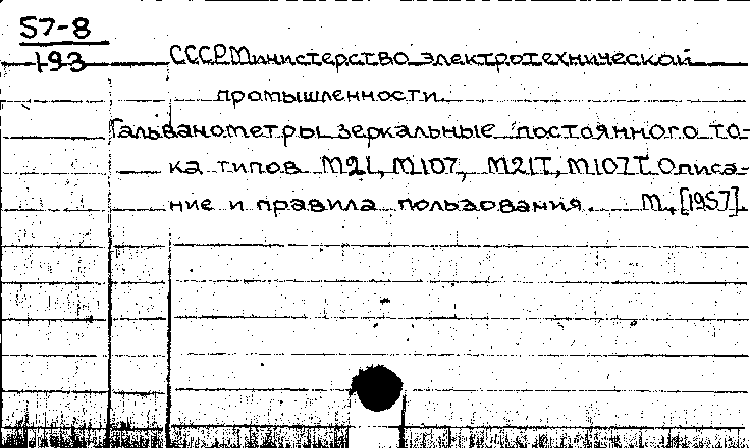 57-8
193
СССР. Министерство электротехнической
промышленности.
Гальванометры зеркальные постоянного то-
ка типов М21, М107, М21Т, М107Т. Описа-
ние и правила пользования. М., [1957].